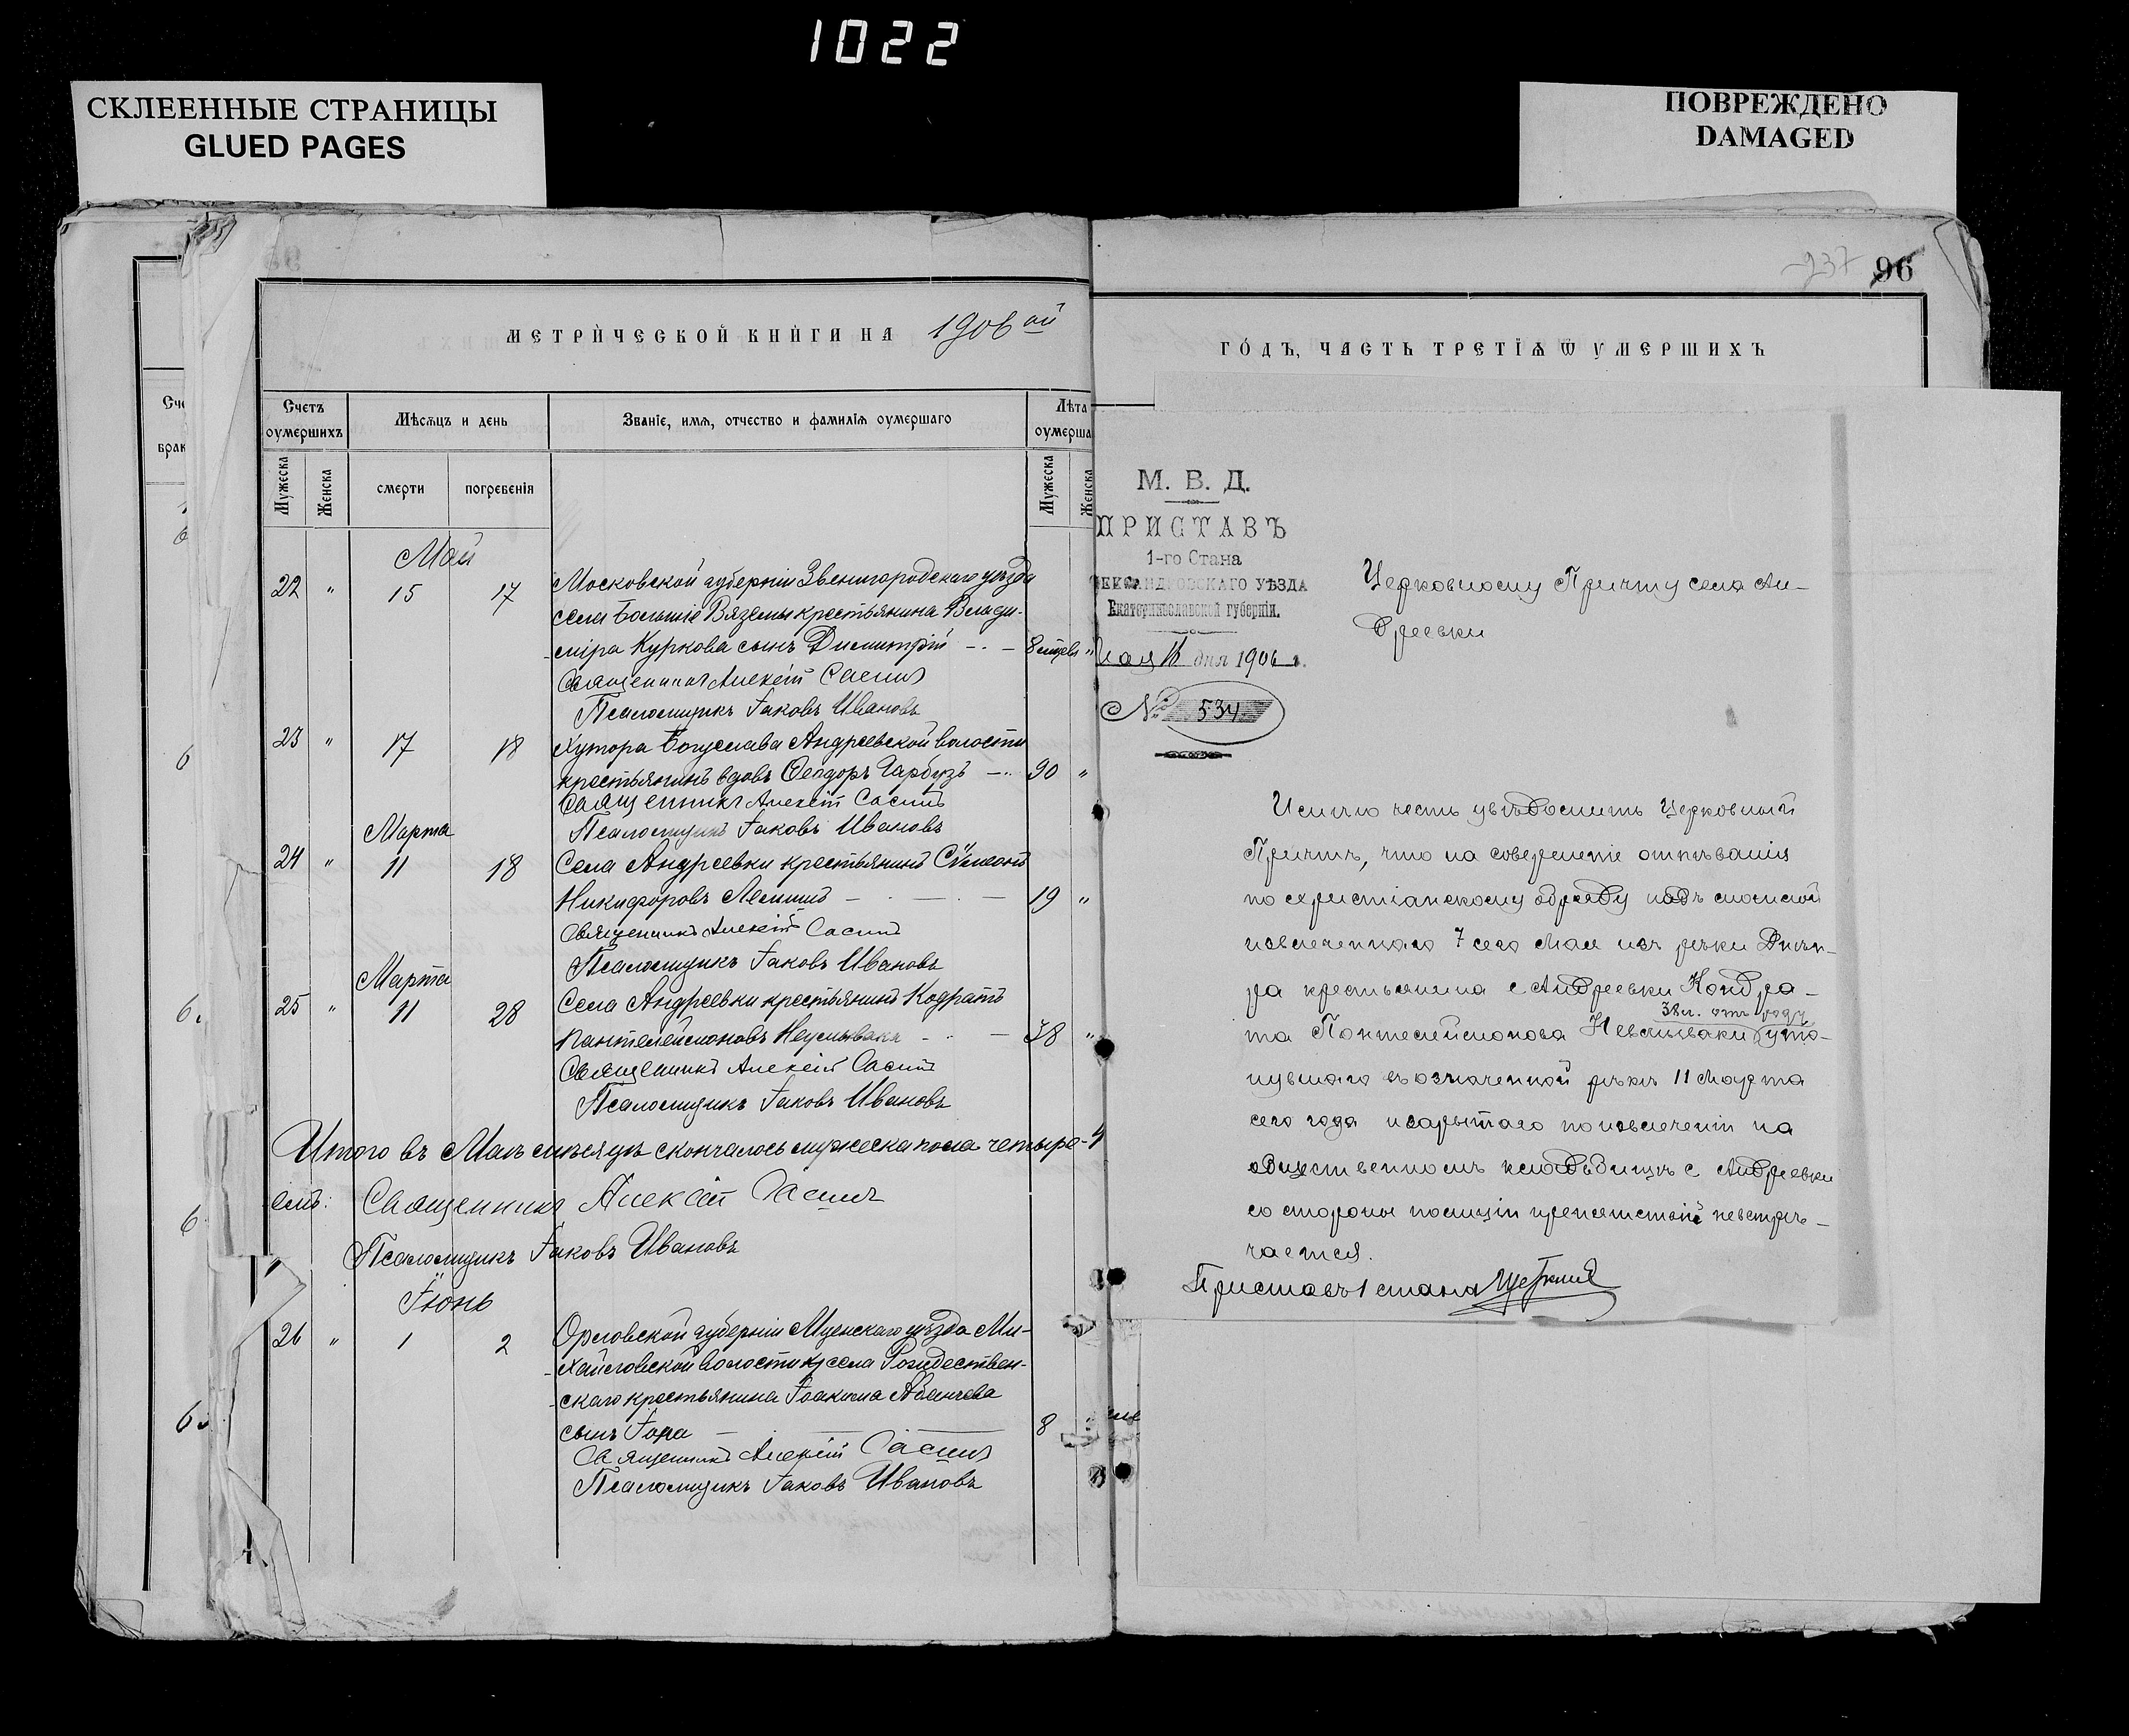 1022
СКЛЕЕННЫЕ СТРАНИЦЫ
GLUED PAGES
ПОВРЕЖДЕНО
DAMAGED
237 96
МЕТРИЧЕСКОЙ КНИГИ НА 1906 ой
Счетъ оумершихъ
Мѣсяцъ и день
Званіе, имя, отчество и фамилія оумершаго
Лѣта оумерша
Мужеска
Женска
смерти
погребенія
Мужеска
Женска
Май
22 " 15 17 Московской губерніи Звенигородскаго уѣзда
села Большіе Вяземы крестьянина Влади-
міра Куркова сынъ Димитрій 8 мѣсяц "
Священникъ Алексій
Псаломщикъ Іаковъ Ивановъ
23 " 17 18 Хутора Богуслава Андреевской волости
крестьянинъ вдовъ Ѳеодоръ Гарбузъ 90 "
Священникъ Алексій
Псаломщикъ Іаковъ Ивановъ
Марта
24 " 11 18 Села Андреевки крестьянинъ Сѷмеонъ
Никифоровъ 19 "
Священникъ Алексій
Псаломщикъ Іаковъ Ивановъ
Марта
25 " 11 28 Села Андреевки крестьянинъ Кодратъ
Пантелеймоновъ 38 "
Священникъ Алексій
Псаломщикъ Іаковъ Ивановъ
Итого въ Маѣ мѣсяцѣ скончалось мужеска пола четыре - 4
Священникъ Алексій
Псаломщикъ Іаковъ Ивановъ
Іюнь
26 " 1 2 Орловской губерніи Мценскаго уѣзда Ми-
хайловской волости села Рождествен-
скаго крестьянина Іоакима
сынъ 8
Священникъ Алексій
Псаломщикъ Іаковъ Ивановъ
ГОДЪ, ЧАСТЬ ТРЕТІЯ Ѿ УМЕРШИХЪ
М. В. Д.
ПРИСТАВЪ
1-го Стана
ЛЕКСАНДРОВСКАГО УѢЗДА
Екатеринославской губерніи.
Мая 16 дня 1906 г.
№ 534
Церковному Причту села Ан-
дреевки
Имѣю честь увѣдомить Церковный
Причтъ, что на совершеніе отпѣванія
по христіанскому обряду надъ могилой
извлеченнаго 7 сего Мая изъ рѣки Днѣп-
ра крестьянина с Андреевки Кондра-
38 л. отъ роду
та Пантелеймонова уто-
нувшаго въ означенной рѣкѣ 11 Марта
сего года и зарытаго по извлеченіи на
общественномъ кладбищѣ с Андреевки
со стороны полиціи препятствій не встрѣ-
чается.
Приставъ 1 стана